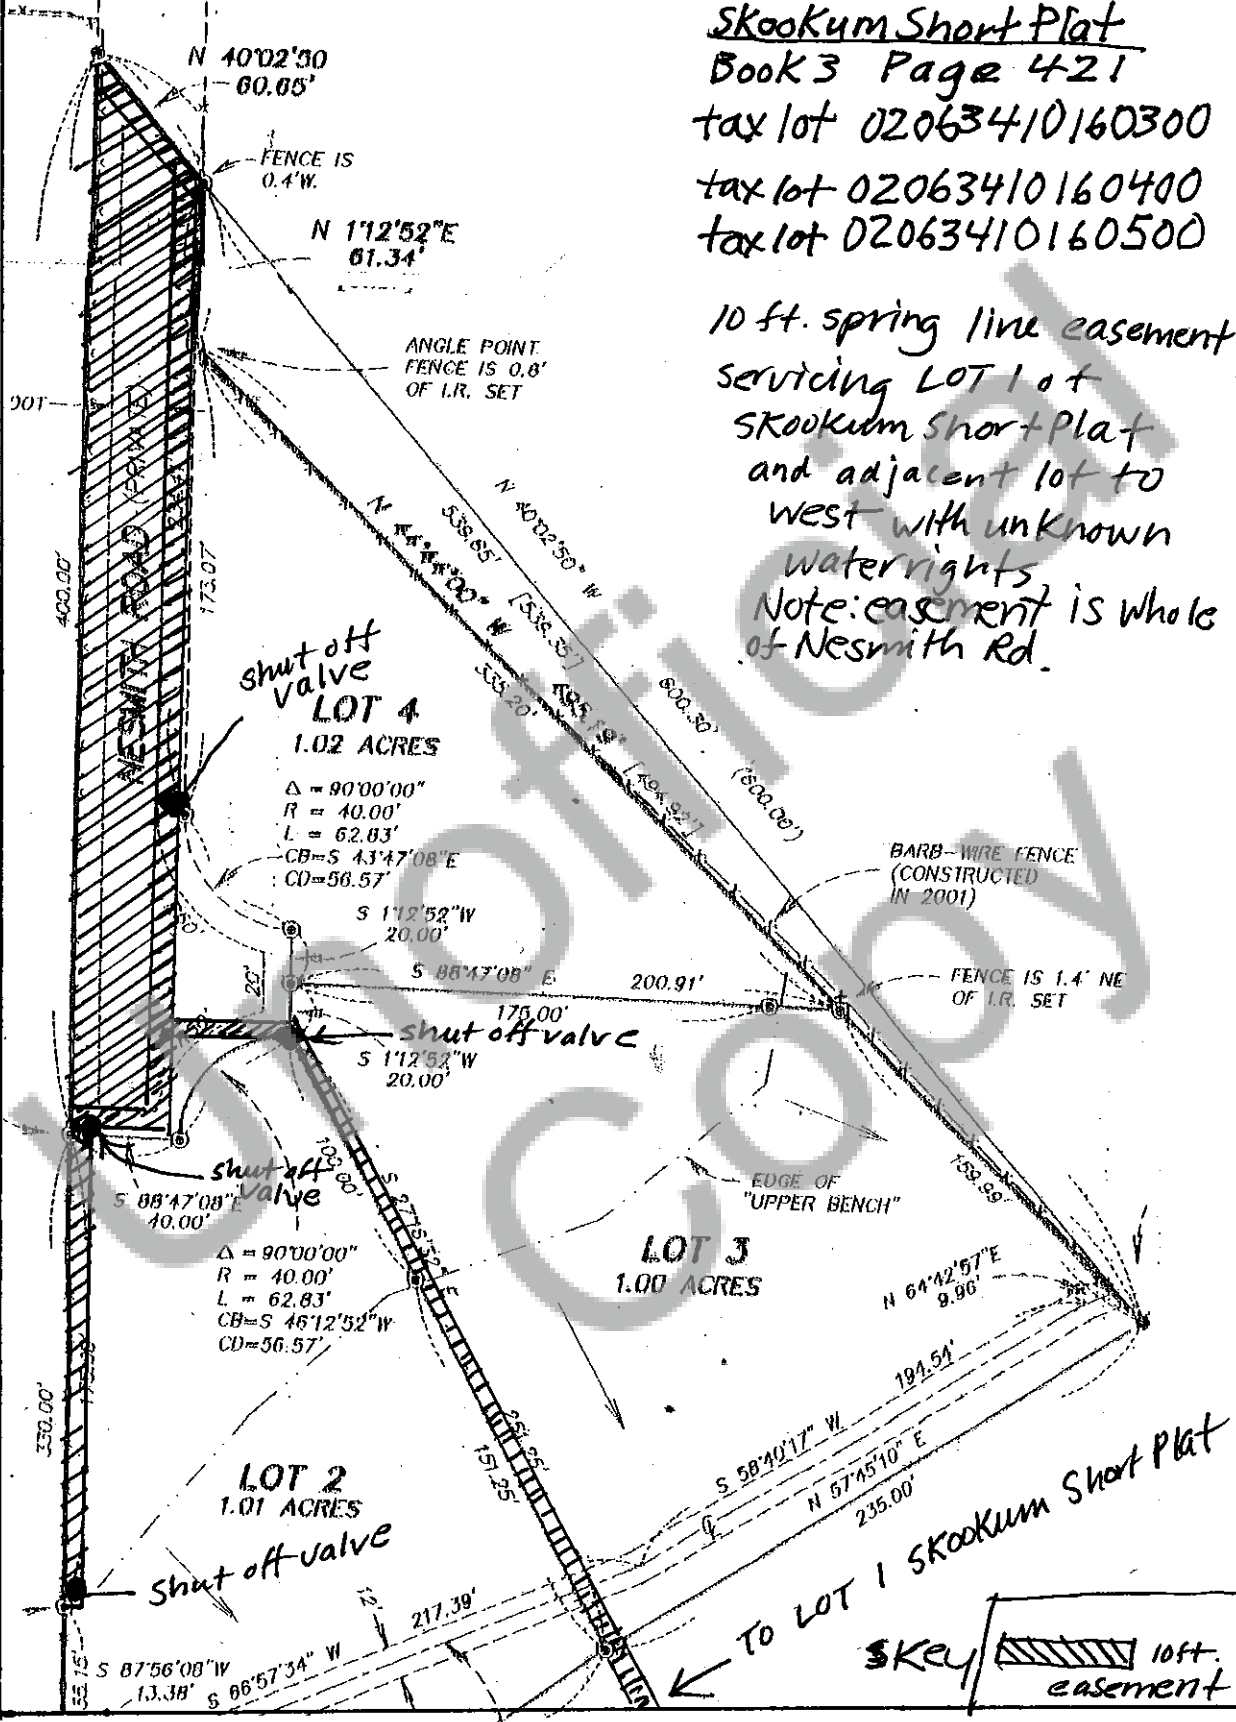 Skookum Short Plat
Book 3 Page 421
tax lot 02063410160300
tax lot 02063410160400
tax lot 02063410160500
10 ft. spring line easement
servicing LOT 1 of
Skookum Short Plat
and adjacent lot to
west with unknown
water rights.
Note: easement is whole
of Nesmith Rd.
N 40°02'50
60.65'
FENCE IS
0.4'W.
N 1°12'52"E
61.34'
ANGLE POINT
FENCE IS 0.8'
OF I.R. SET
OOT
400.00'
NESMITH ROAD (PRIVATE)
173.07'
N 40°02'50" W
539.65'
[539.35']
600.30'
(600.00')
335.20'
495.19'
[494.92']
shut off
valve
LOT 4
1.02 ACRES
Δ = 90°00'00"
R = 40.00'
L = 62.83'
CB=S 43°47'08"E
CD=56.57'
BARB-WIRE FENCE
(CONSTRUCTED
IN 2001)
S 1°12'52"W
20.00'
20'
S 88°47'08" E
200.91'
175.00'
FENCE IS 1.4' NE
OF I.R. SET
shut off valve
S 1°12'52"W
20.00'
shut off
valve
S 88°47'08"E
40.00'
100.00'
S 27°15'32" E
EDGE OF
"UPPER BENCH"
159.99'
Δ = 90°00'00"
R = 40.00'
L = 62.83'
CB=S 46°12'52"W
CD=56.57'
LOT 3
1.00 ACRES
N 64°42'57"E
9.96'
330.00'
251.25'
151.25'
194.54'
S 58°40'17" W
N 57°45'10" E
235.00'
LOT 2
1.01 ACRES
Shut off valve
12'
217.39'
S 87°56'08"W
13.38'
S 66°57'34" W
TO LOT 1 Skookum Short Plat
Key
10ft.
easement
Unofficial
Copy